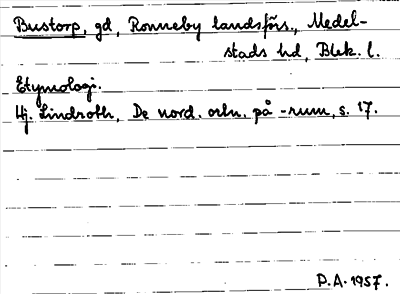 Bustorp, gd, Ronneby landsförs., Medel-
stads hd, Blek. l.
Etymologi.
Hj. Lindroth, De nord. ortn. på -rum, s. 17.
P.A. 1957.